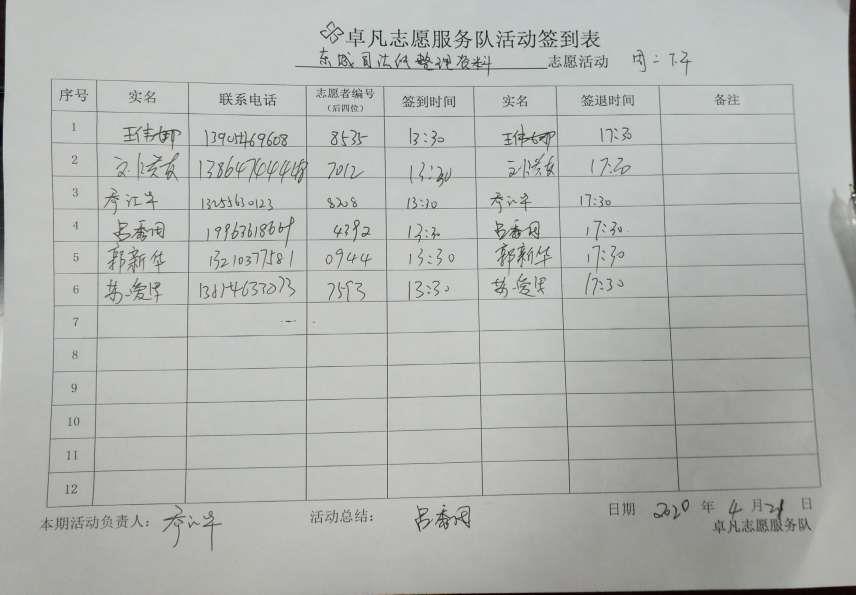 卓凡志愿服务队活动签到表
东城司法所整理资料 志愿活动 周二下午
序号 实名 联系电话 志愿者编号(后四位) 签到时间 实名 签退时间 备注
1 王伟娜 8535 13:30 王伟娜 17:30
2 7012 13:30 17:30
3 13255630123 8208 13:30 17:30
4 吕香闰 19963618669 4392 13:30 吕香闰 17:30
5 郭新华 13210377581 0944 13:30 郭新华 17:30
6 7593 13:30 17:30
7
8
9
10
11
12
本期活动负责人: 活动总结: 吕香闰 日期 2020 年 4 月 21 日
卓凡志愿服务队